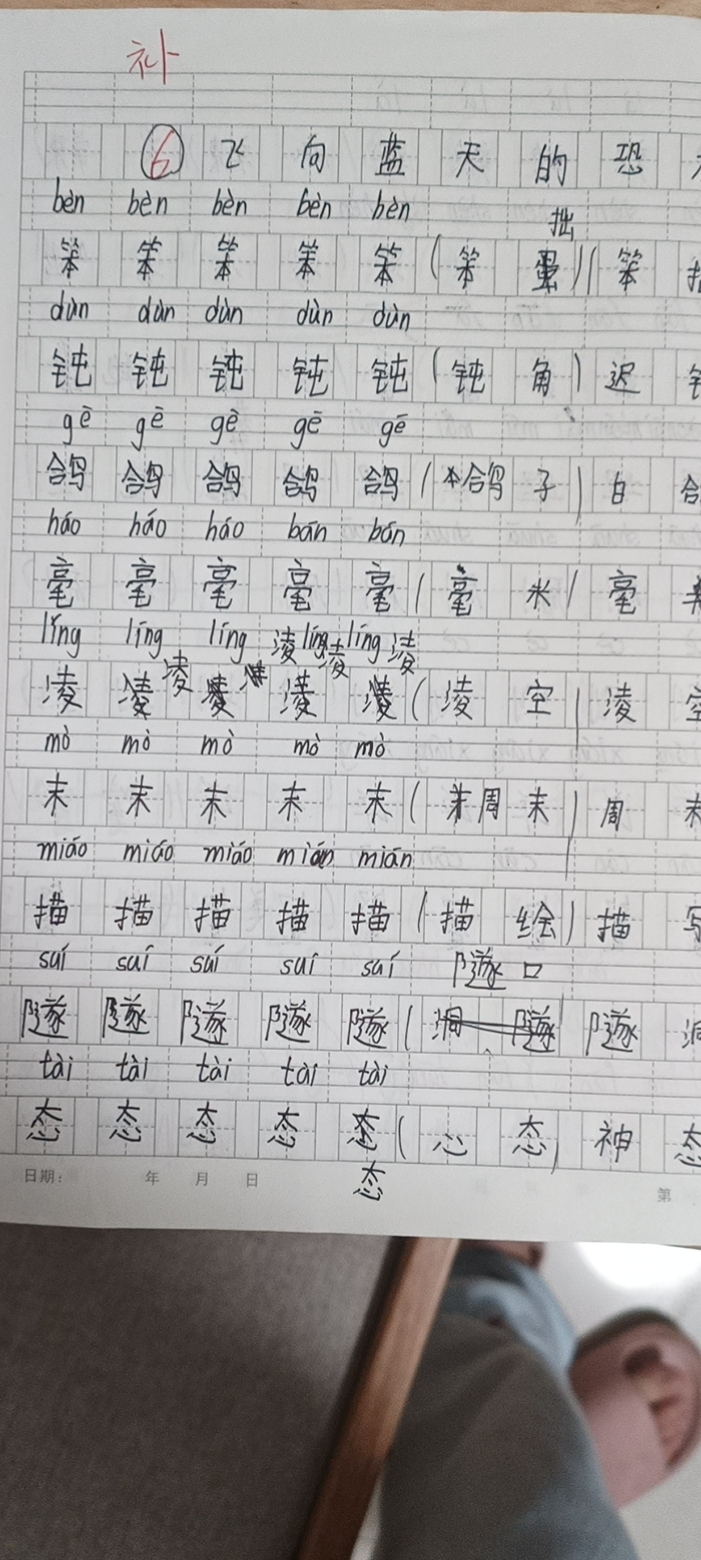 补
6 飞 向 蓝 天 的 恐
bèn bèn bèn bèn bèn 拙
笨 笨 笨 笨 笨 ( 笨 蛋 ) ( 笨
dùn dùn dùn dùn dùn
钝 钝 钝 钝 钝 ( 钝 角 ) 迟
gē gē gē gē gē
鸽 鸽 鸽 鸽 鸽 ( 鸽 子 ) 白
háo háo háo bán bán
毫 毫 毫 毫 毫 ( 毫 米 ) 毫
líng líng líng 凌 líng 凌 líng 凌
凌 凌 凌 凌 凌 ( 凌 空 ) 凌 空
mò mò mò mò mò
末 末 末 末 末 ( 周 末 ) 周 末
miáo miáo miáo mián mián
描 描 描 描 描 ( 描 绘 ) 描 写
suí suí suí suí suí 隧 口
隧 隧 隧 隧 隧 ( 洞 隧 隧 洞
tài tài tài tài tài
态 态 态 态 态 ( 心 态 ) 神 态
态
日期: 年 月 日 第